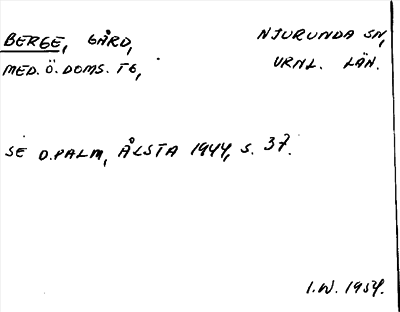 BERGE, GÅRD, NJURUNDA SN,
MED. Ö. DOMS. TG, VRNL. LÄN.
SE D. PALM, ÅLSTA 1944, S. 37.
I.W. 1954.